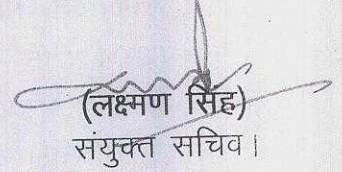 (लक्ष्मण सिंह)
संयुक्त सचिव।